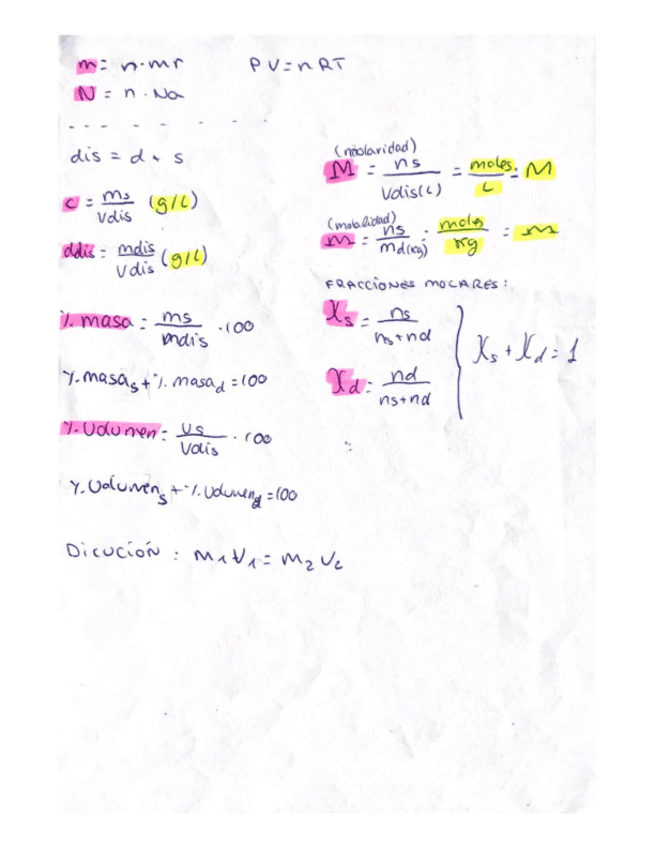 m = n·mr
PV = nRT
N = n · Na
dis = d + s
c = ms / Vdis (g/L)
ddis = mdis / Vdis (g/L)
%masa = ms / mdis · 100
%masa_s + %masa_d = 100
%Volumen = Vs / Vdis · 100
%Volumen_s + %Volumen_d = 100
Dilución : M1V1 = M2V2
(molaridad)
M = ns / Vdis(L) = moles / L = M
(molalidad)
m = ns / md(kg) = moles / kg = m
FRACCIONES MOLARES:
Xs = ns / ns+nd
Xd = nd / ns+nd
Xs + Xd = 1